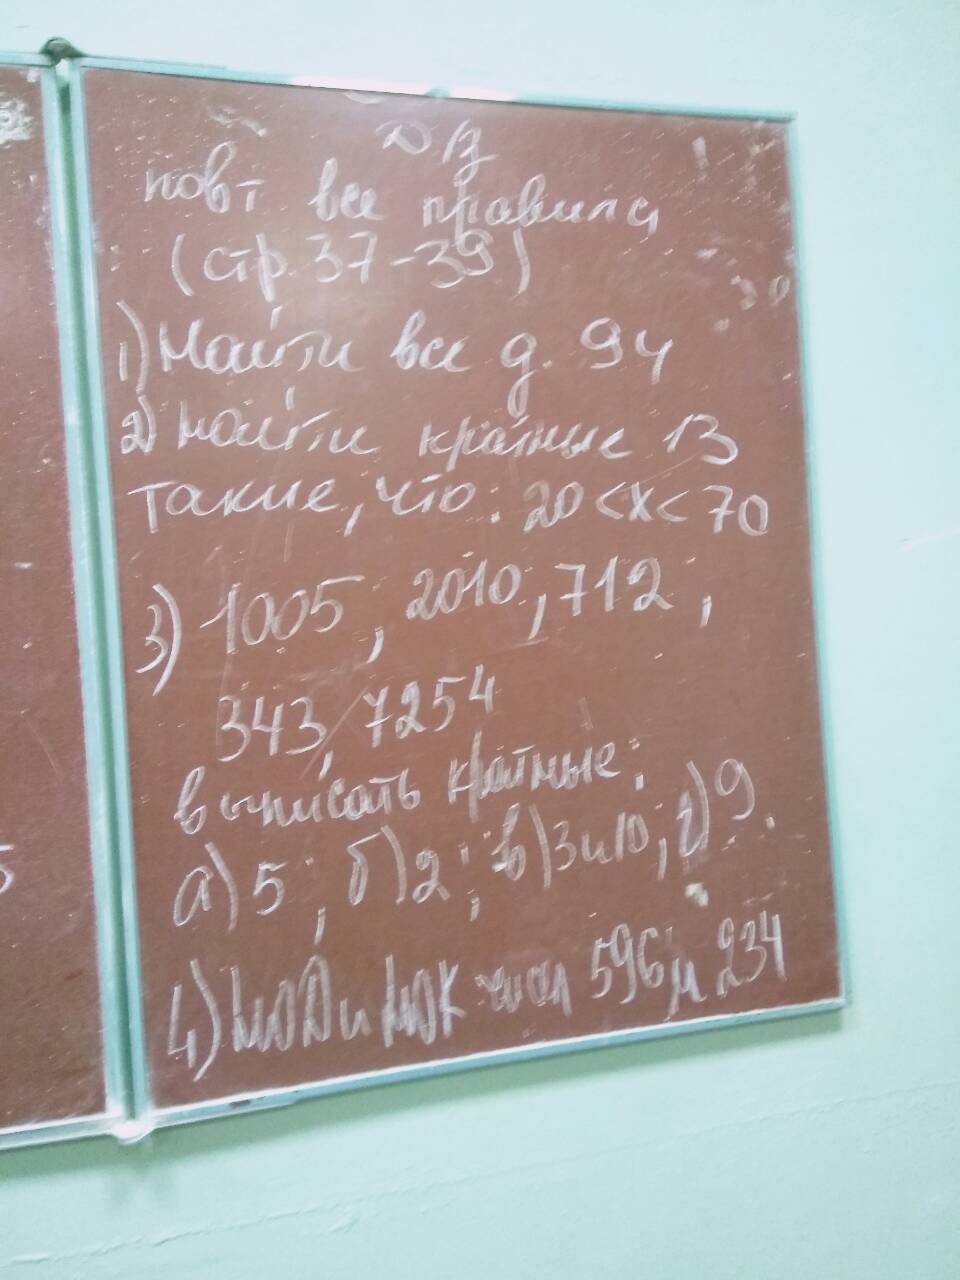 Д/з
повт все правила
(стр 37-39)
1) Найти все д. 94
2) найти кратные 13
такие, что: 20 < x < 70
3) 1005, 2010, 712,
343, 7254
выписать кратные:
а) 5; б) 2; в) 3 и 10, г) 9.
4) НОД и НОК чисел 596 и 234
5